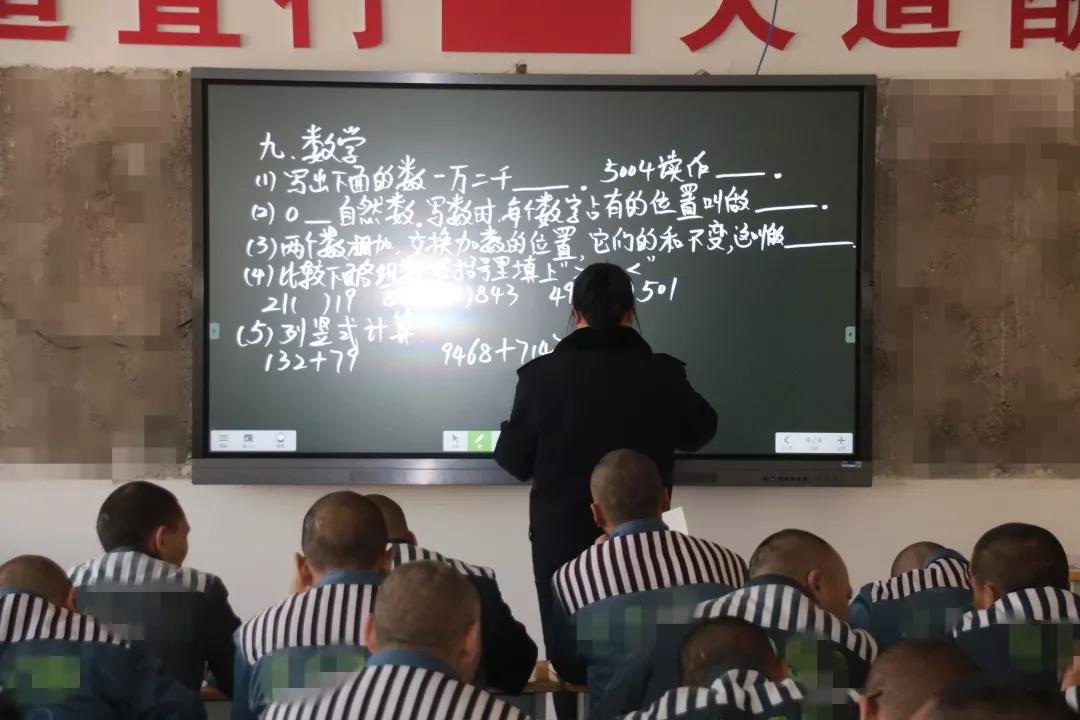 道直行 天道酬
九、数学
(1) 写出下面的数 一万二千____. 5004读作____.
(2) 0__自然数.写数时,每个数字占有的位置叫做____.
(3) 两个数相加,交换加数的位置,它们的和不变,这叫做____.
(4) 比较下面各组数,在括号里填上">""<"
21( )19 8 )843 49 501
(5) 列竖式计算.
132+79 9468+714
4/4